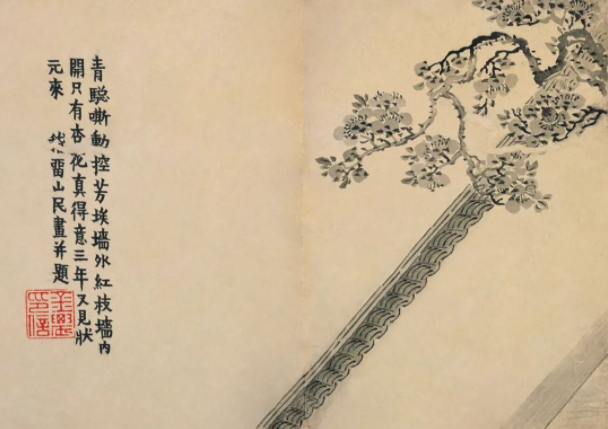 青驄嘶動控芳埃墻外紅枝墻內
開只有杏花真得意三年又見狀
元來
雷山民畫并題